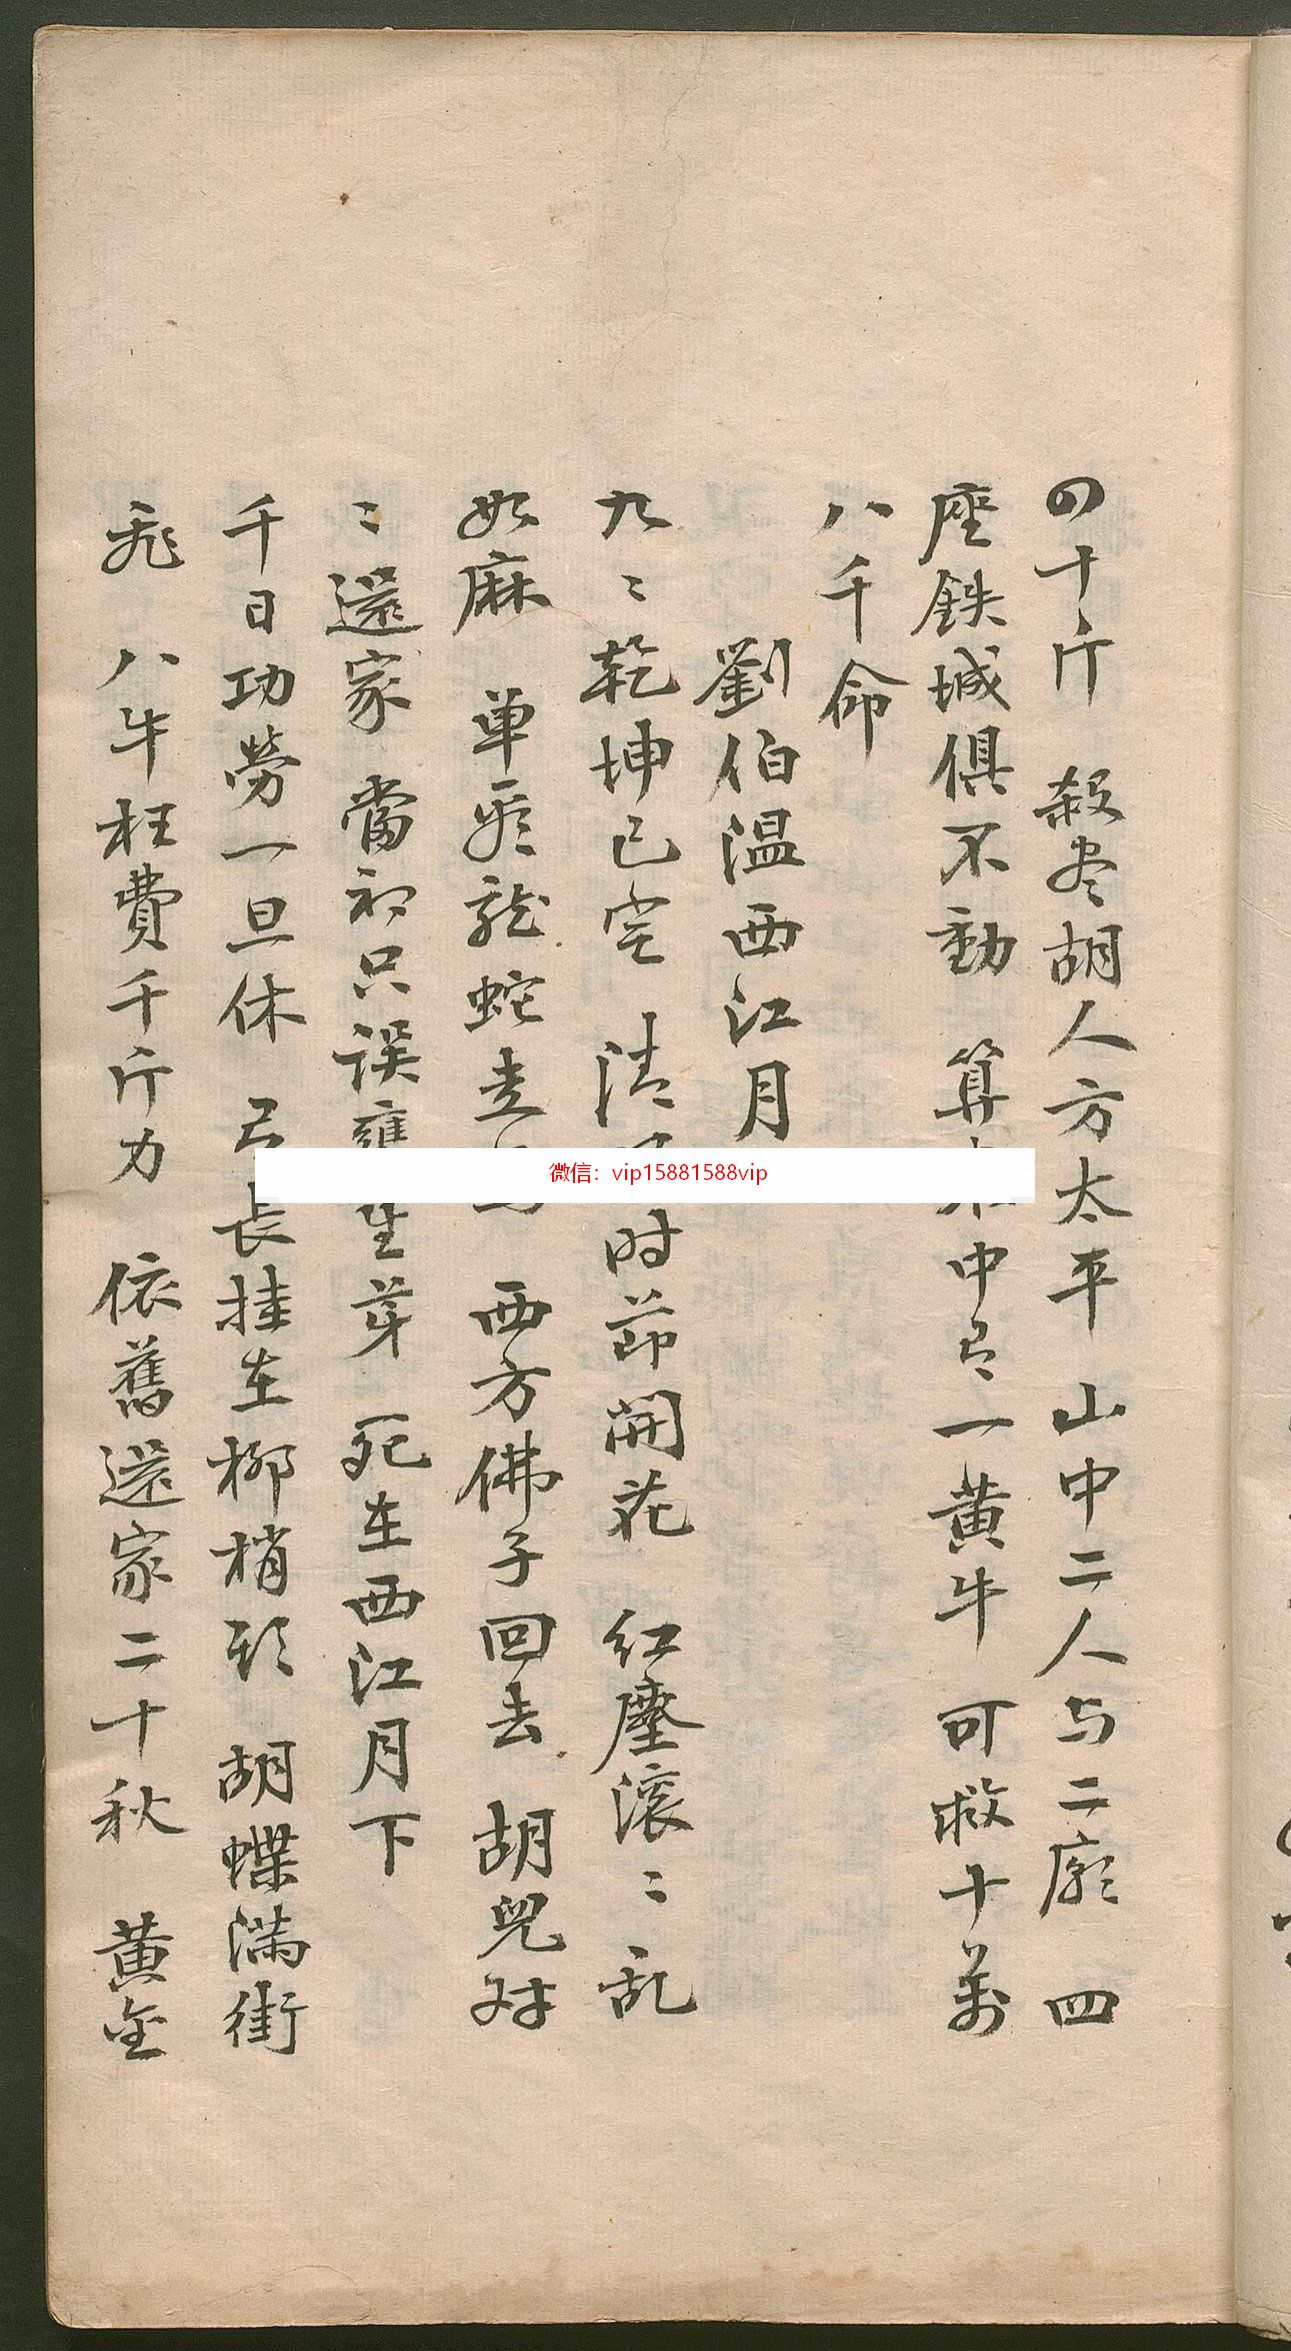 四十斤 殺尽胡人方太平 山中二人与二廍 四
座鉄城俱不動 算 中 一黄牛 可救十萬
八千命
劉伯温西江月
九〻乾坤已定 清 时节開花 红塵滚〻乱
如麻 单 龍蛇走 西方佛子回去 胡兒对
〻還家 當初只误 生芽 死在西江月下
千日功勞一旦休 長挂在柳梢頭 胡蝶满街
飛 八牛枉費千斤力 依舊還家二十秋 黄金
微信：vip15881588vip